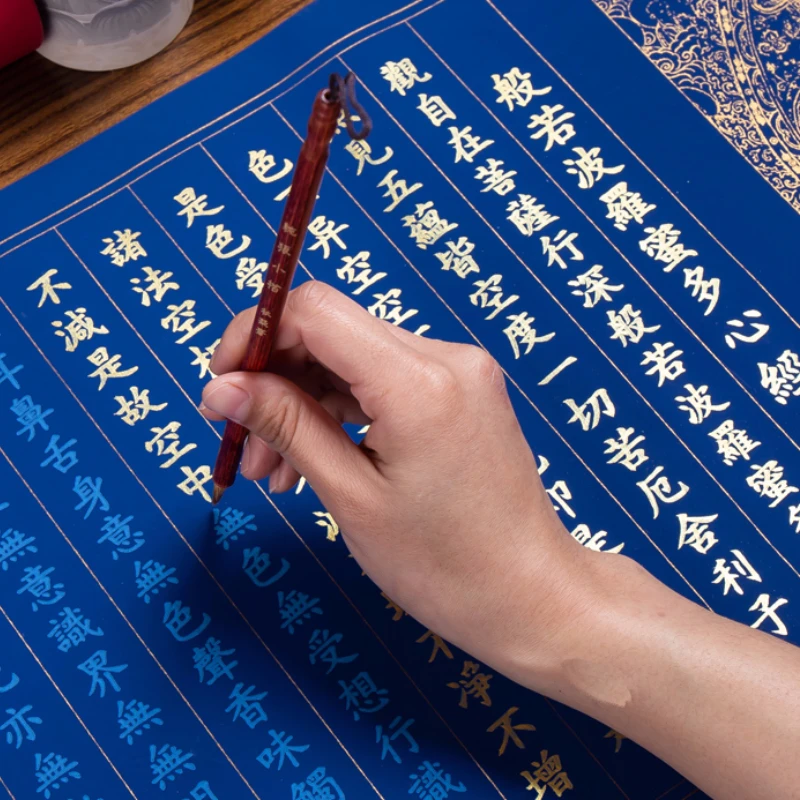 般若波羅蜜多心經
觀自在菩薩行深般若波羅蜜
見五蘊皆空度一切苦厄舍利子
色异空空即是
是色受
諸法空相不淨不增
不減是故空中無色無受想行識
耳鼻舌身意無色聲香味觸
無意識界無無
亦無